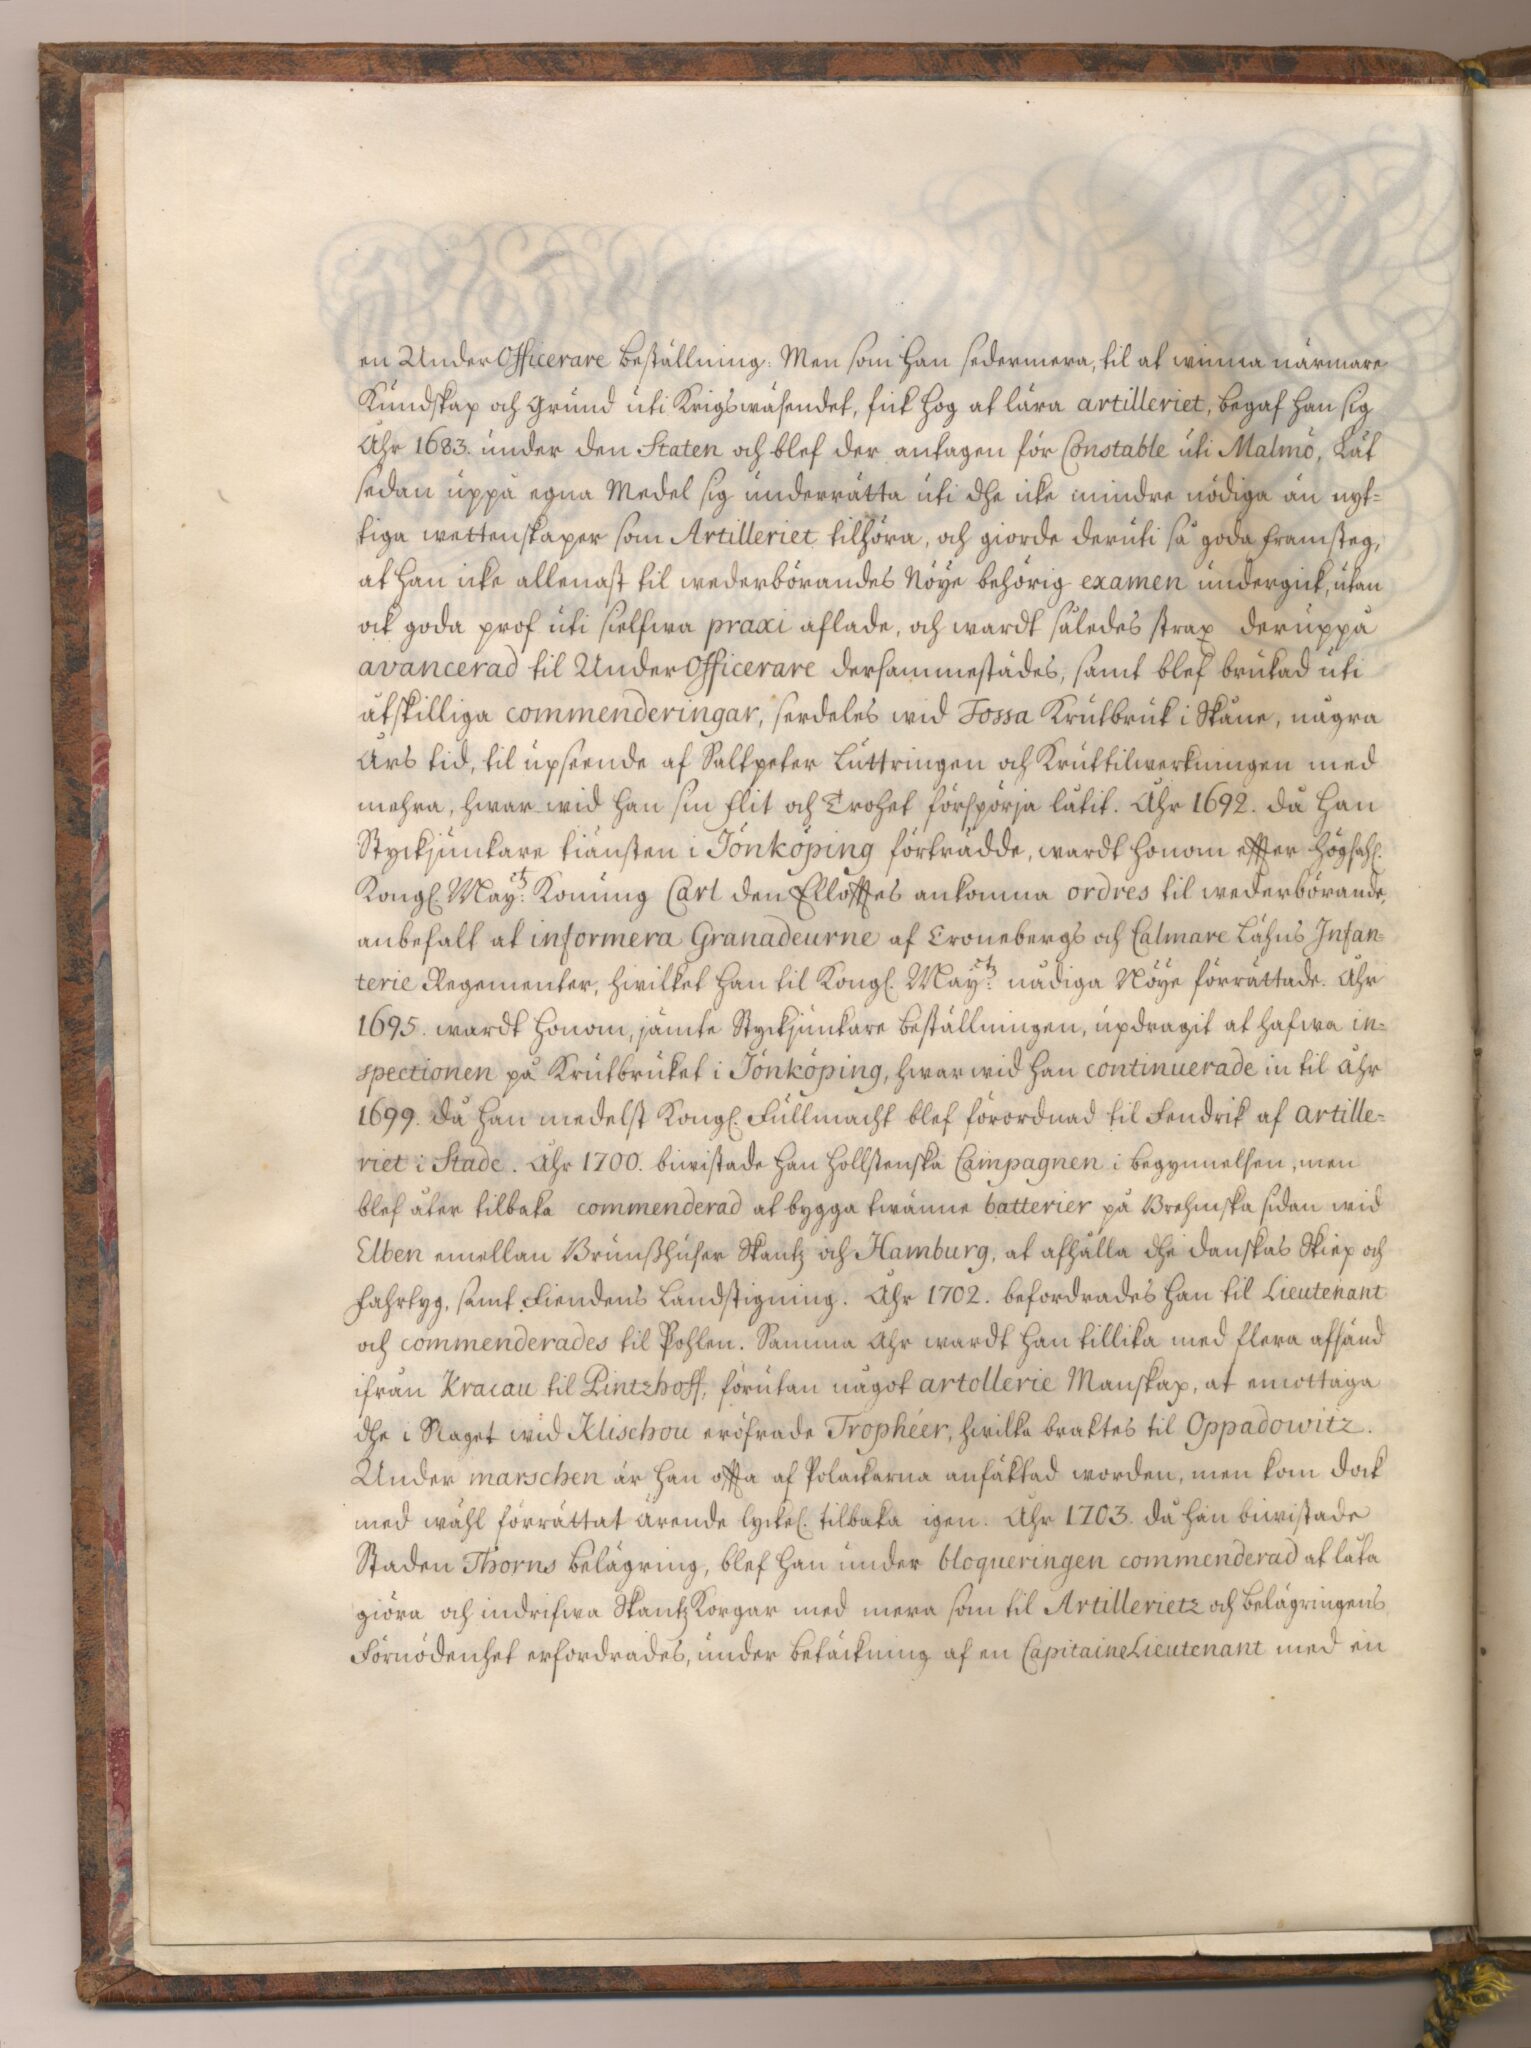 en Under Officerare beställning: Men som han sedermera, til at winna närmare
Kundskap och Grund uti Krigswäsendet, fick Hog at lära artilleriet, begaf han sig
Åhr 1683. under den Staten och blef der antagen för Constable uti Malmö, Lät
sedan uppå egna Medel sig underrätta uti dhe icke mindre nödiga än nyt-
tiga wettenskaper som Artilleriet tilhöra, och giorde deruti så goda framsteg,
at han icke allenast til wederbörandes Nöye behörig examen undergick, utan
ock goda prof uti sielfwa praxi aflade, och wardt således strax deruppå
avancerad til Under Officerare dersammestädes, samt blef brukad uti
åtskilliga commenderingar, serdeles wid Tossa Krutbruk i Skåne, några
Års tid, til upseende af Saltpeter Luttringen och Kruttilwerkningen med
mehra, hwar wid han sin flit och Trohet förspörja låtit. Åhr 1692. då han
Styckjunkare tiänsten i Jönköping förträdde, wardt honom effter Högsahl.
Kongl. May:tz Konung Carl den Ellofftes ankomna ordres til wederbörande,
anbefalt at informera Granadeurne af Cronebergs och Calmare Lähns Infan-
terie Regementer, hwilket han til Kongl. May:tz nådiga Nöye förrättade. Åhr
1695. wardt honom, jämte Styckjunkare beställningen, updragit at hafwa in-
spectionen på Krutbruket i Jönköping, hwar wid han continuerade in til Åhr
1699. då han medelst Kongl. Fullmacht blef förordnad til Fendrik af artille-
riet i Stade. Åhr 1700. biwistade han Hollstenska Campagnen i begynnelsen, men
blef åter tilbaka commenderad at bygga twänne batterier på Brehmska sidan wid
Elben emellan Brunßhuser Skantz och Hamburg, at afhålla dhe danskas Skiep och
fahrtyg, samt Fiendens Landstigning. Åhr 1702. befordrades han til Lieutenant
och commenderades til Pohlen. Samma Åhr wardt han tillika med flera afsänd
ifrån Kracau til Pintzhoff, förutan något artollerie Manskap, at emottaga
dhe i Slaget wid Klischou eröfrade Trophéer, hwilka braktes til Oppadowitz.
Under marschen är han offta af Polackarna anfäktad worden, men kom dock
med wähl förrättat ärende lyckel. tilbaka igen. Åhr 1703. då han biwistade
Staden Thorns belägring, blef han under bloqueringen commenderad at låta
giöra och indrifwa Skantz Korgar med mera som til Artillerietz och belägringens
Förnödenhet erfordrades, under betäckning af en Capitaine Lieutenant med en